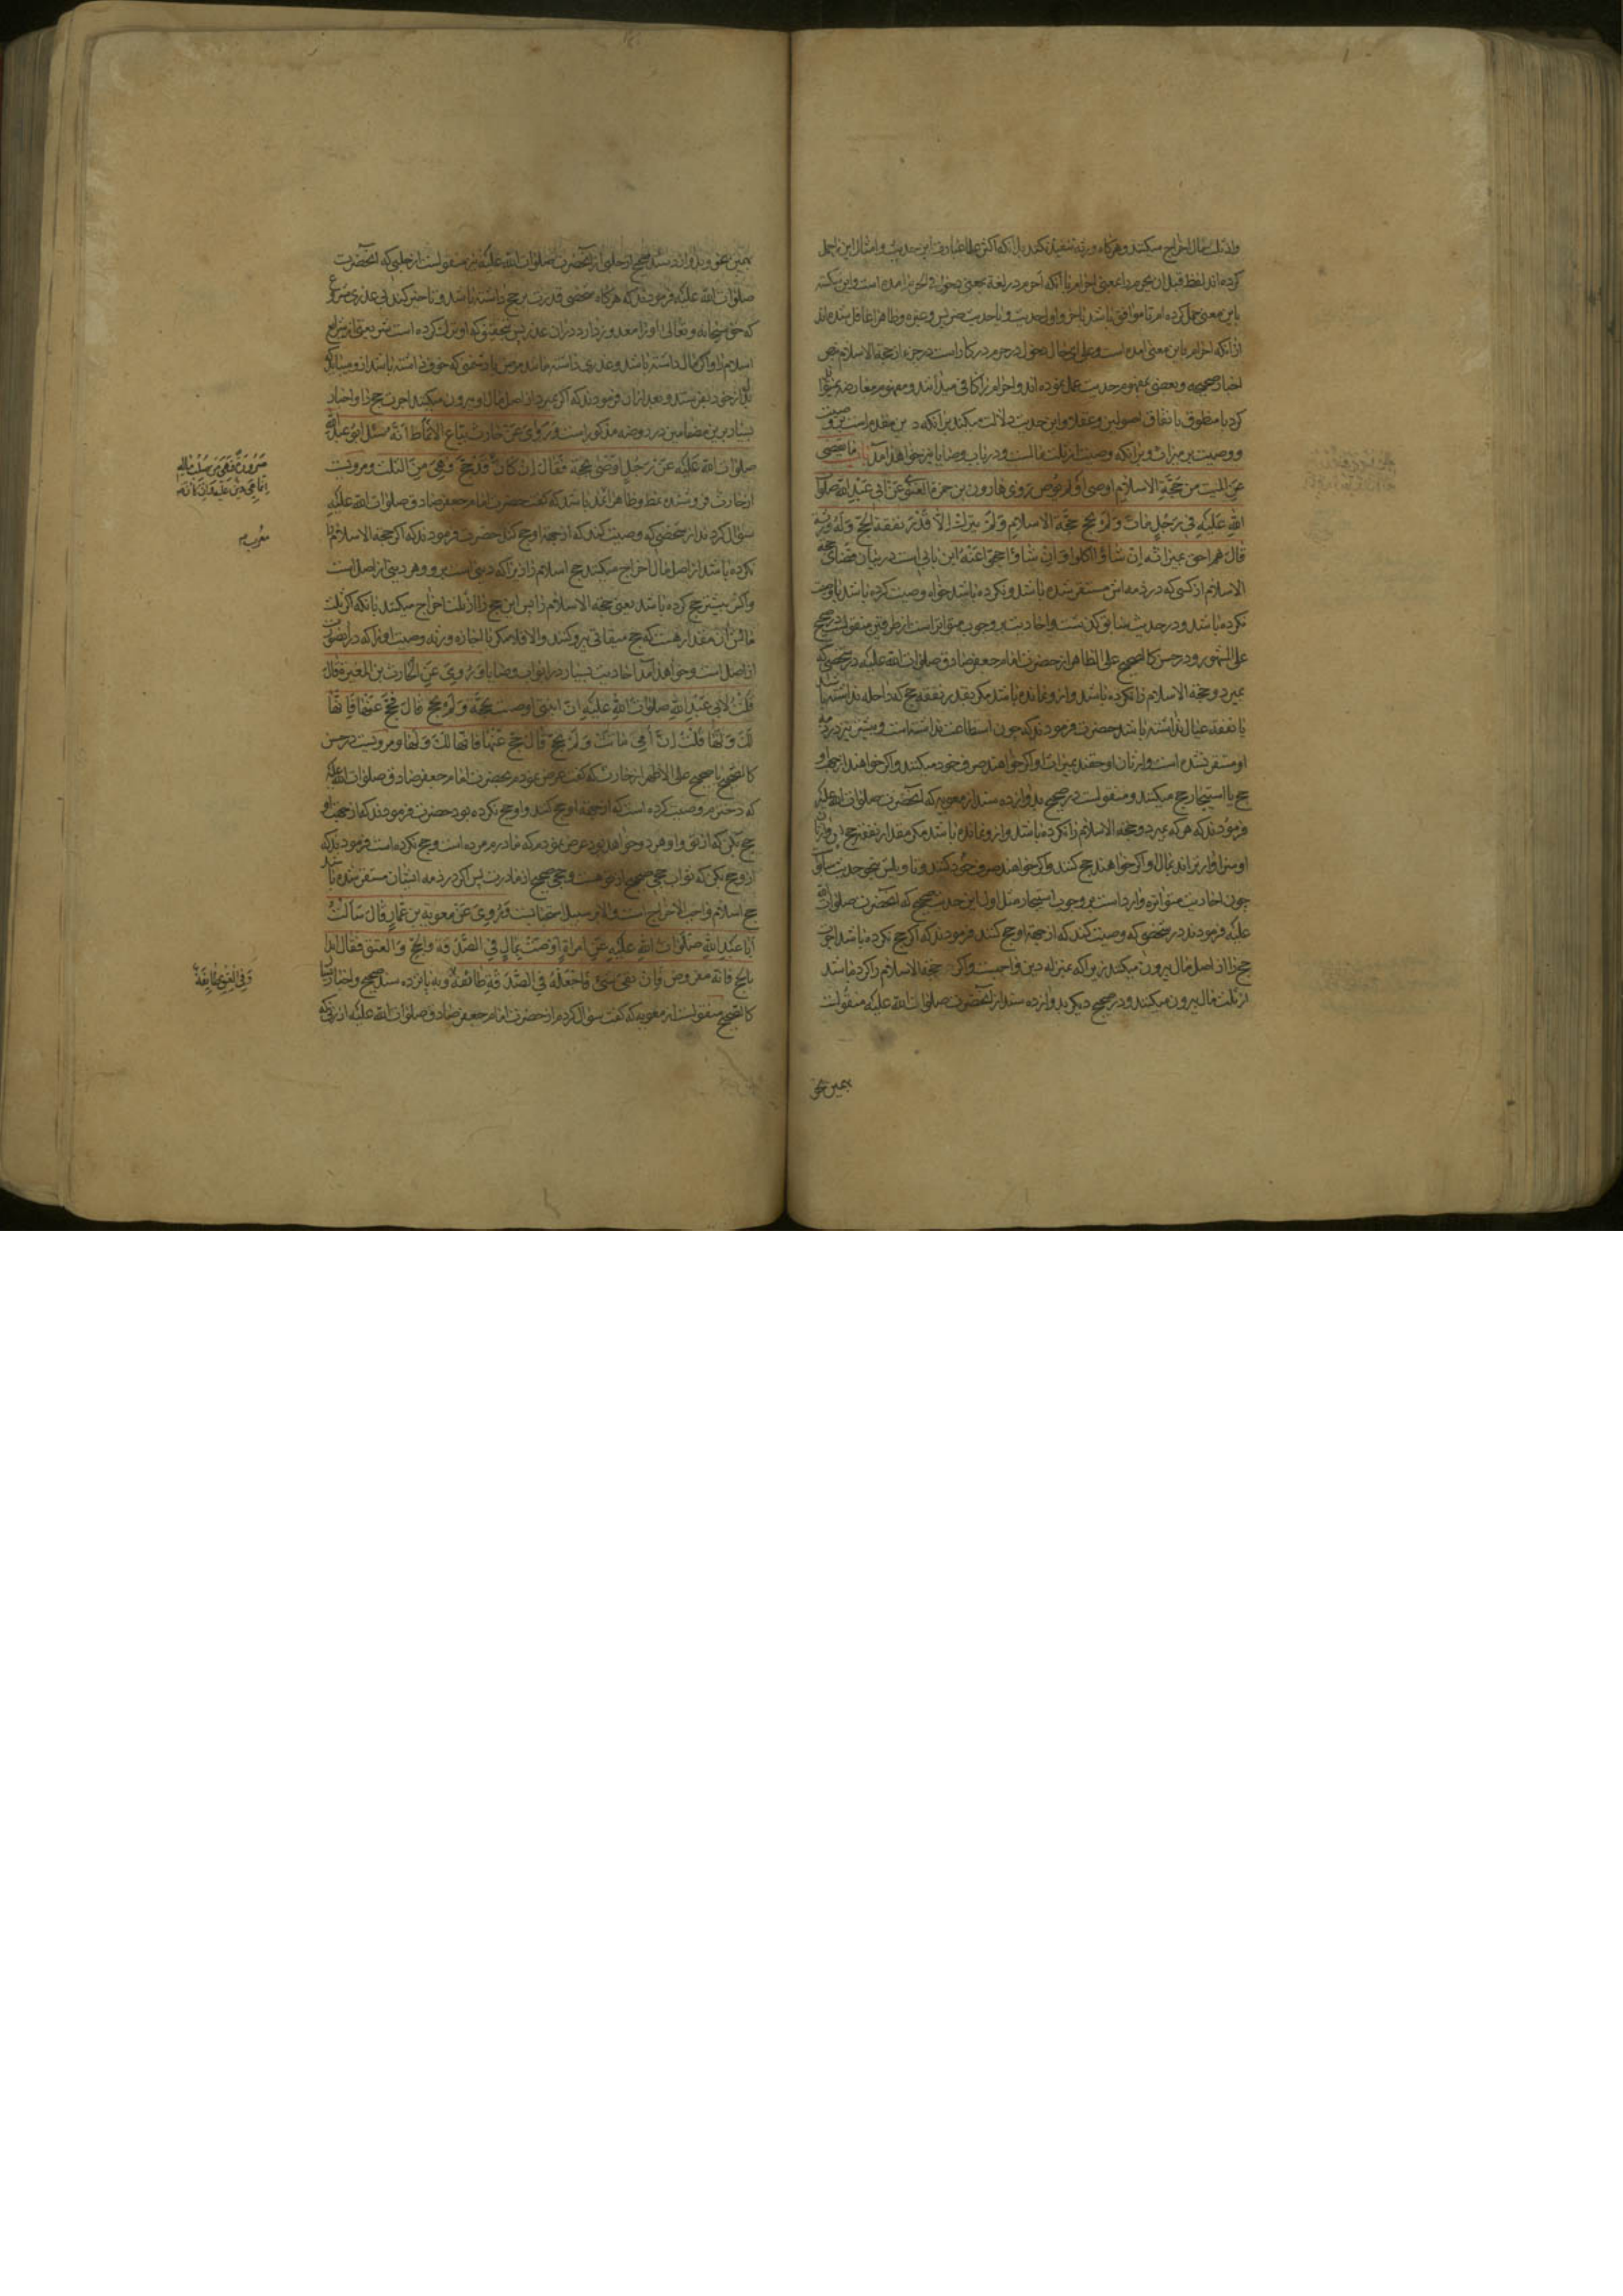 واز ثلث مال اخراج میکنند و هرگاه ورثه تنفیذ نکنند بل آنکه اکثر علما عبارت این حدیث و امثال این را حمل
کرده‌اند لفظ قبل ان یحرم را بمعنی احرام با آنکه احرم در لغة بمعنی دخول فی الحرم آمده است و این نکته
باین معنی حمل کرده‌اند تا موافق باشد با جزو اول حدیث و با حدیث ضریس و غیره و ظاهرا غافل شده‌اند
از آنکه احرام باین معنی آمده است و علی ای حال دخول در حرم در کار است در جزء از حجة الاسلام بنص
اخبار صحیحه و بعضی بمفهوم حدیث عمل نموده‌اند و احرام را کافی میدانند و مفهوم معارضه نمیتواند
کرد با منطوق باتفاق اصولیین و عقلا و این حدیث دلالت میکند بر آنکه دین مقدم است بر وصیت
و وصیت بر میراث و بر آنکه وصیت از ثلث مالست و در باب وصایا نیز خواهد آمد باب ما یقضی
عن المیت من حجة الاسلام اوصی او لم یوص روی هارون بن حمزة الغنوی عن ابی عبد الله صلوات
الله علیه فی رجل مات و لم یحج حجة الاسلام و لم یترك الا قدر نفقة الحج و له ورثة
قال هم احق بمیراثه ان شاؤا اکلوا و ان شاؤا حجوا عنه این بابی است در بیان قضای حجة
الاسلام از کسی که در ذمه اش مستقر شده باشد و نکرده باشد خواه وصیت کرده باشد یا وصیت
نکرده باشد و در حدیث سابق گذشت و احادیث بر وجوب متواتر است از طرفین منقولست در صحیح
علی المشهور و در حسن کالصحیح علی الظاهر از حضرت امام جعفر صادق صلوات الله علیه در شخصی که
بمیرد و حجة الاسلام را نکرده باشد و از او نمانده باشد مگر بقدر نفقه حج که راحله نداشته باشد
یا نفقه عیال نداشته باشد حضرت فرمودند که چون استطاعت نداشته است و بیشتر نیز در ذمه
او مستقر نشده است وارثان او حقند بمیراث او اگر خواهند صرف خود میکنند و اگر خواهند از جهة او
حج یا استیجار حج میکنند و منقولست در صحیح بدوازده سند از معویه که آنحضرت صلوات الله علیه
فرمودند که هر که بمیرد و حجة الاسلام را نکرده باشد و از او نمانده باشد مگر مقدار نفقه حج وارثان
او سزاوارترند بمال او اگر خواهند حج کنند و اگر خواهند صرف خود کنند
چون احادیث متواتره وارد است بر وجوب استیجار مثل اول این حدیث صحیح که آنحضرت صلوات الله
علیه فرمودند در شخصی که وصیت کند که از جهة او حج کنند فرمودند که اگر حج نکرده باشد
حج را از اصل مال بیرون میکنند زیرا که بمنزله دین واجبست و اگر حجة الاسلام را کرده باشد
از ثلث مال بیرون میکنند و در صحیح دیگر بدوازده سند از آنحضرت صلوات الله علیه منقولست
بهمین نحو
بهمین نحو و بدوازده سند صحیح از حلبی از آنحضرت صلوات الله علیه نیز منقولست از حلبی که آنحضرت
صلوات الله علیه فرمودند که هرگاه شخصی قدرت بر حج داشته باشد و تاخیر کند بی عذری شرعی
که حق سبحانه و تعالی او را معذور دارد در آن عذر پس بتحقیق که او ترك کرده است شریعتی از شرایع
اسلام را و اگر مال داشته باشد و عذری داشته باشد مانند مرض یا دشمنی که خوف داشته باشد از او میباید که
بدل از خود بفرستد و بعد از آن فرمودند که اگر بمیرد از اصل مال او بیرون میکنند اجرت حج را و اخبار
بسیار برین مضامین در روضه مذکور است و روی عن حارث بیاع الانماط انه سئل ابو عبد الله
صلوات الله علیه عن رجل اوصی بحجة فقال ان کان قد حج فهی من الثلث و مرویست
از حارث فروشنده نمط و ظاهرا نمد باشد که گفت حضرت امام جعفر صادق صلوات الله علیه
سؤال کردند از شخصی که وصیت کند که از جهة او حج کنند حضرت فرمودند که اگر حجة الاسلام را
نکرده باشد از اصل مال اخراج میکنند حج اسلام را زیرا که دینی است بر او و هر دینی از اصل است
و اگر بیشتر حج کرده باشد یعنی حجة الاسلام را پس این حج را از ثلث اخراج میکنند با آنکه اگر ثلث
مالش آن مقدار هست که حج میقاتی بیرون کنند و الا فلا مگر با اجازه ورثه وصیت او را که در آنصورت
از اصل است و خواهد آمد احادیث بسیار در ابواب وصایا و روی عن الحارث بن المغیرة قال
قلت لابی عبد الله صلوات الله علیه ان ابنتی اوصت بحجة و لم تحج قال فحج عنها فانها
لك و لها قلت ان امی ماتت و لم تحج قال حج عنها فانها لك و لها و مرویست در حسن
کالصحیح یا صحیح علی الاظهر از حارث که گفت عرض نمودم بحضرت امام جعفر صادق صلوات الله علیه
که دخترم وصیت کرده است که از جهة او حج کنند و او حج نکرده بود حضرت فرمودند که از جهت او
حج بکن که از تو و او هر دو خواهد بود عرض نمودم که مادرم مرده است و حج نکرده است فرمودند که
از او حج بکن که ثواب حجی صحیح از تو هست و حجی صحیح از مادرت پس اگر در ذمه ایشان مستقر شده باشد
حج اسلام واجب الاخراج است و الا بر سبیل استحبابست و روی عن معویة بن عمار قال سألت
ابا عبد الله صلوات الله علیه عن امراة اوصت بمال فی الصدقة و الحج و العتق فقال ابدا
بالحج فانه مفروض فان بقی شئ فاجعله فی الصدقة طائفة و به پانزده سند صحیح و اخبار بسیار
کالصحیح منقولست از معویه که گفت سؤال کردم از حضرت امام جعفر صادق صلوات الله علیه از زنی که
صرورة فهی من صلب ماله
انما هی دین علیه فان کان قد
معرب
و فی العتق طائفة